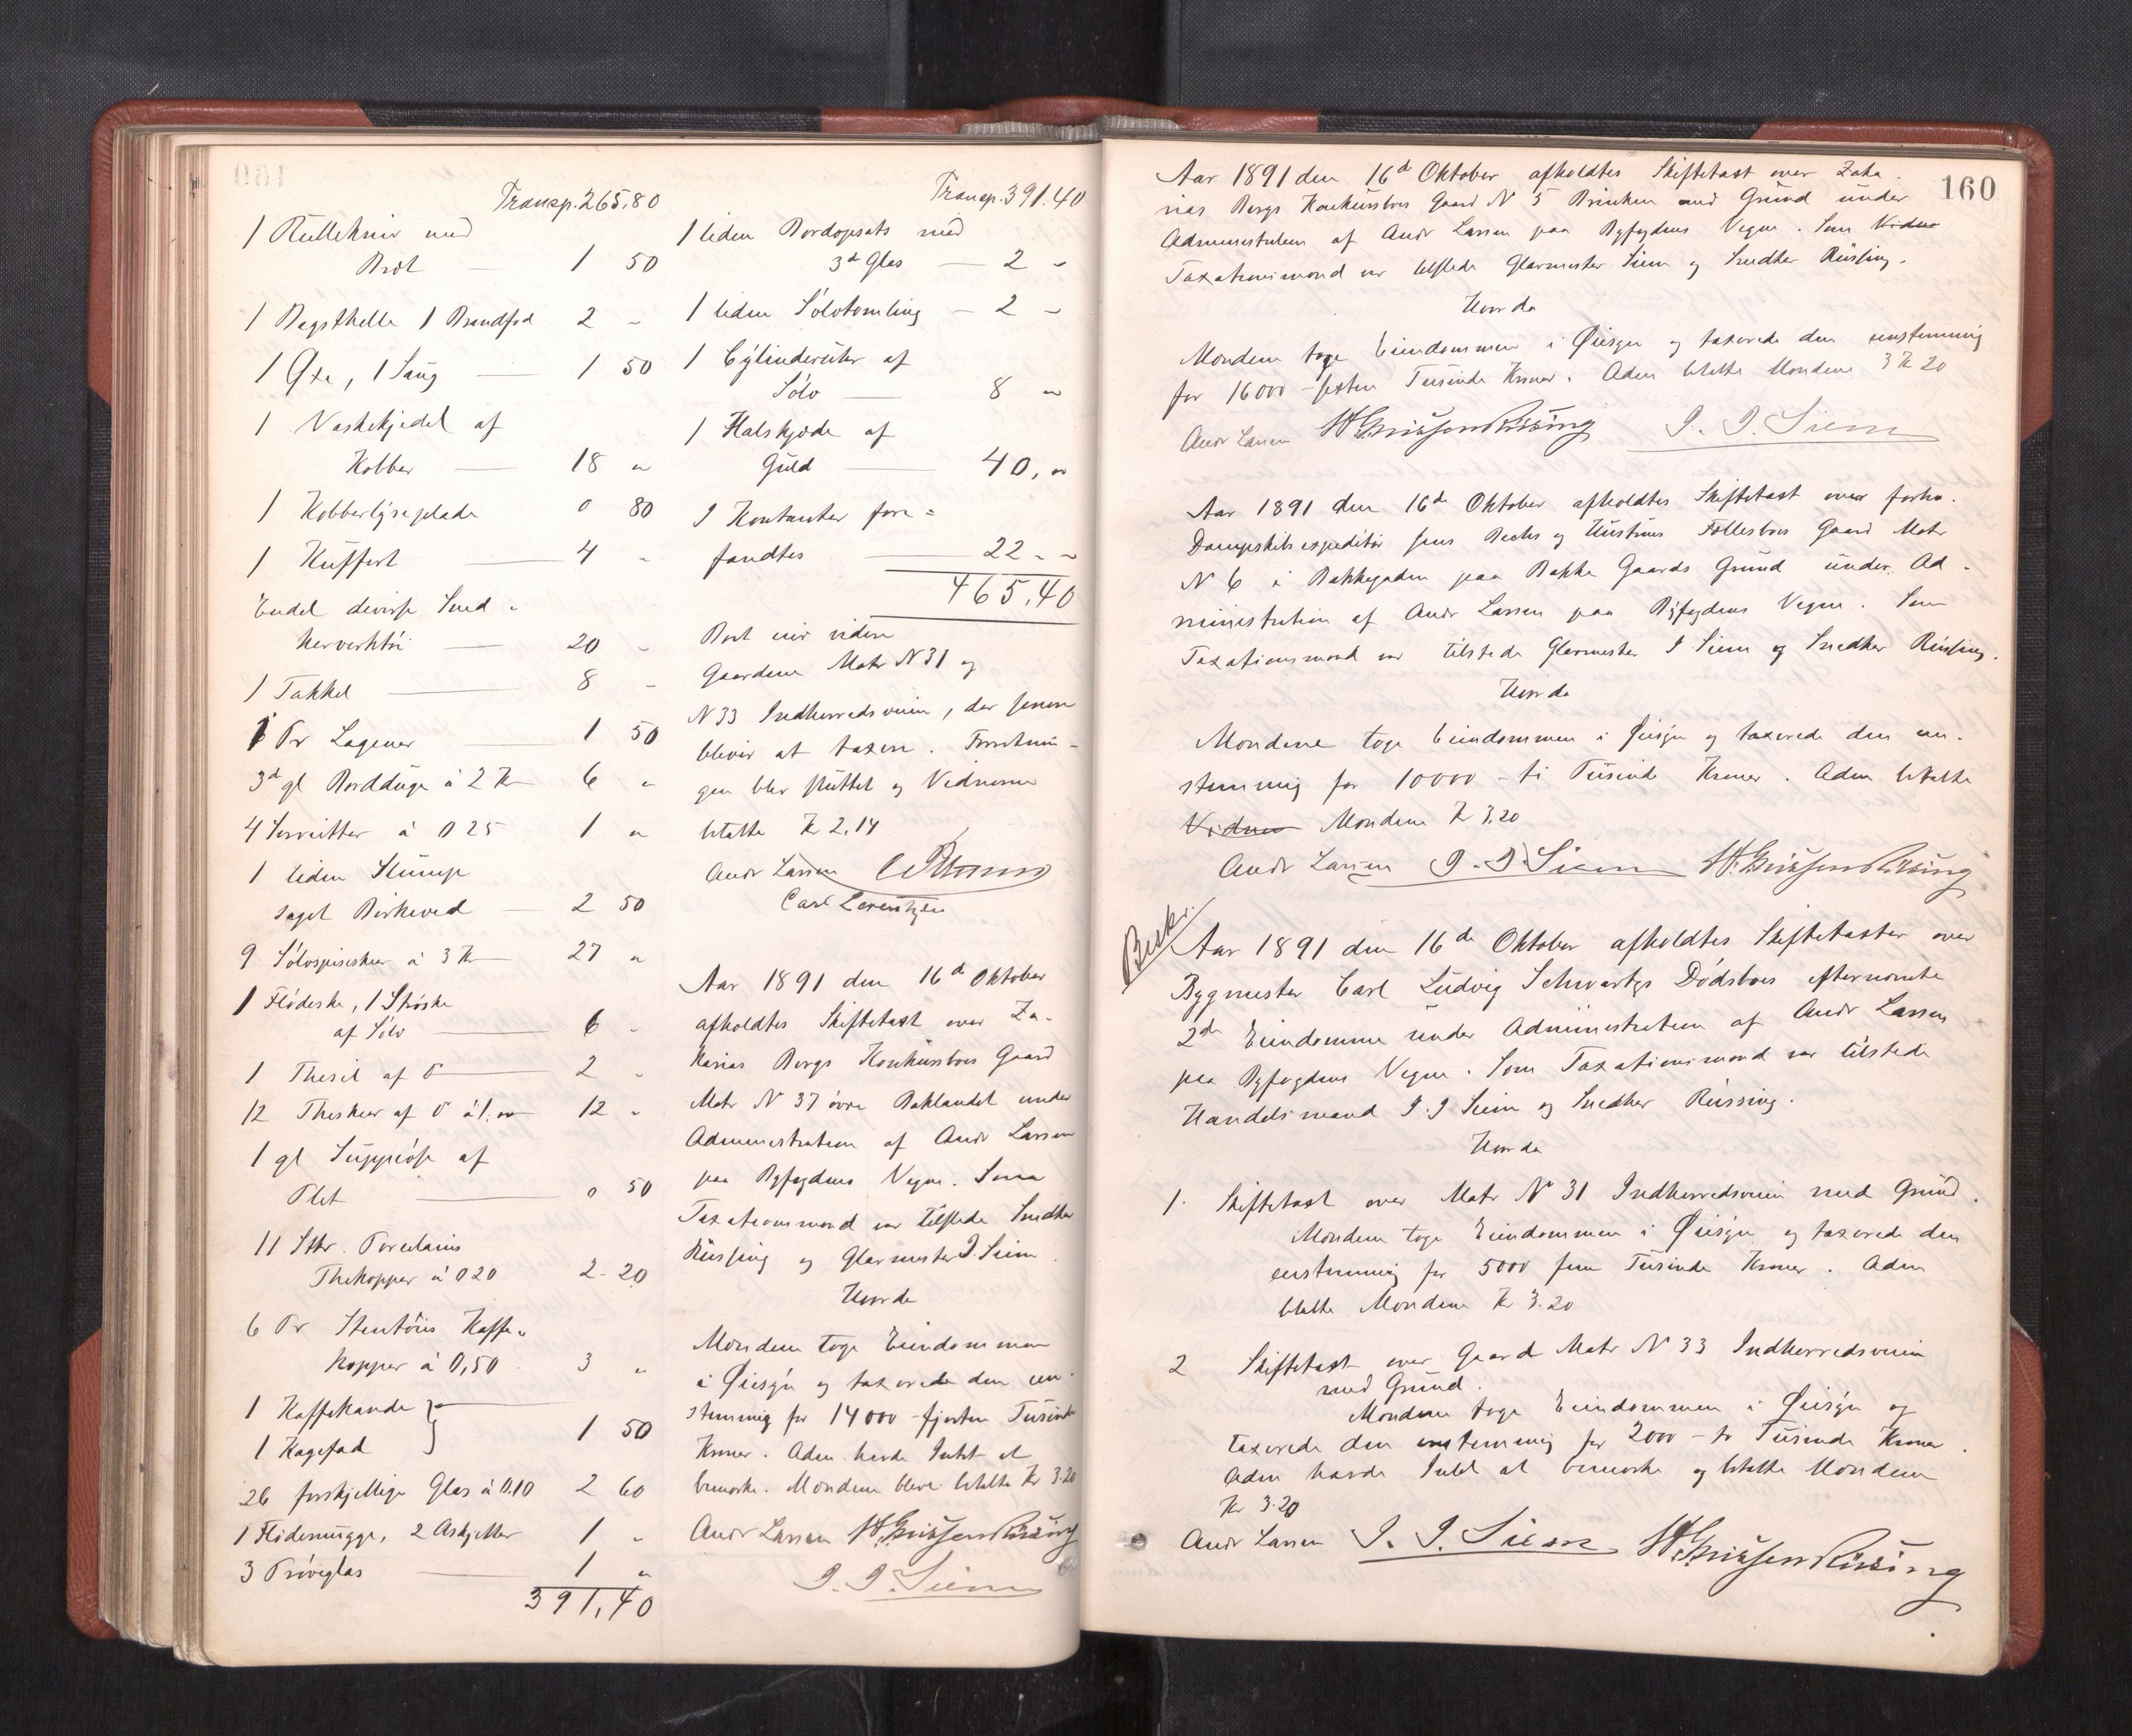 Transp. 265,80
1 Rullekniv med
Bræt — 1 50
1 Bagsthelle 1 Brandfod 2 "
1 Øxe, 1 Saug — 1 50
1 Vaskekjedel af
Kobber — 18 "
1 Kobberlyseplade 0 80
1 Kuffert — 4 "
Endel diverse Sned-
kerverktöi — 20 "
1 Takkel — 8 "
1 Pr Lagener — 1 50
3de gl Bordduge à 2 Kr 6 "
4 Servietter à 0 25 1 "
1 liden Stump
saget Birkeved — 2 50
9 Sölvspiseskeer à 3 Kr 27 "
1 Flödeske, 1 Ströske
af Sölv — 6 "
1 Thesil af D — 2 "
12 Theskeer af D à 1.00 12 "
1 gl Suppeöse af
Plet — 0 50
11 Stkr. Porcelains
Thekopper à 0 20 2 - 20
6 Pr Stentöis Kaffe-
kopper à 0,50 3 "
1 Kaffekande
1 Kagefad 1 50
26 forskjellige Glas à 0.10 2 60
1 Flödemugge, 2 Asietter 1 "
3 Pröveglas — 1 "
391,40
Transp. 391.40
1 liden Bordopsats med
3de Glas — 2 "
1 liden Sölvtomling — 2 "
1 Cylinderuhr af
Sölv — 8 "
1 Halskjæde af
Guld — 40, "
I Kontanter fore-
fandtes — 22 - "
465,40
Boet eier videre
Gaardene Matr N 31 og
N 33 Indherredsveien, der senere
bliver at taxere. Forretnin-
gen blev sluttet og Vidnerne
betalte Kr 2.14
Andr Larsen
Carl Lorentzen
Aar 1891 den 16de Oktober
afholdtes Skiftetaxt over Za-
karias Bergs Konkursboes Gaard
Matr N 37 övre Baklandet under
Administration af Andr Larsen
paa Byfogdens Vegne. Som
Taxationsmænd var tilstede Snedker
Rüssing og Glarmester I. Siem.
Hvorda
Mændene toge Eiendommen
i Öiesyn og taxerede den een-
stemmig for 14000 - fjorten Tusinde
Kroner. Adm. havde Intet at
bemærke. Mændene bleve betalte Kr 3.20
Andr Larsen H. Grüssen Rüsing
I. I. Siem
160
Aar 1891 den 16de Oktober afholdtes Skiftetaxt over Zaka-
rias Bergs Konkursboes Gaard N 5 Brinken med Grund under
Administration af Andr Larsen paa Byfogdens Vegne. Som Vidne
Taxationsmænd var tilstede Glarmester Siem og Snedker Rüssing.
Hvorda
Mændene toge Eiendommen i Öiesyn og taxerede den eenstemmig
for 16000 - sexten Tusinde Kroner. Adm betalte Mændene 3 Kr 20
Andr Larsen H Grüssen Rüsing I. I. Siem
Aar 1891 den 16de Oktober afholdtes Skiftetaxt over forhv.
Dampskibsexpeditör Jens Bechs og Hustrus Fællesboes Gaard Matr
N 6 i Bakkegaden paa Bakke Gaards Grund under Ad-
ministration af Andr Larsen paa Byfogdens Vegne. Som
Taxationsmænd var tilstede Glarmester I Siem og Snedker Rüssing.
Hvorda
Mændene toge Eiendommen i Öiesyn og taxerede den een-
stemmig for 10000 - ti Tusinde Kroner. Adm betalte
Vidne Mændene Kr 3.20
Andr Larsen I. I. Siem H. Grüssen Rüsing
Besk.
Aar 1891 den 16de Oktober afholdtes Skiftetaxter over
Bygmester Carl Ludvig Schwartz Dödsboes efternævnte
2de Eiendomme under Administration af Andr Larsen
paa Byfogdens Vegne. Som Taxationsmænd var tilstede
Handelsmand I. I Siem og Snedker Rüssing.
Hvorda
1. Skiftetaxt over Matr N 31 Indherredsveien med Grund.
Mændene toge Eiendommen i Öiesyn og taxerede den
eenstemmig for 5000 fem Tusinde Kroner. Adm
betalte Mændene Kr 3.20
2 Skiftetaxt over Gaard Matr N 33 Indherredsveien
med Grund.
Mændene toge Eiendommen i Öiesyn og
taxerede den eenstemmig for 2000 - to Tusinde Kroner.
Adm havde Intet at bemærke og betalte Mændene
Kr 3.20
Andr Larsen I. I. Siem H. Grüssen Rüsing